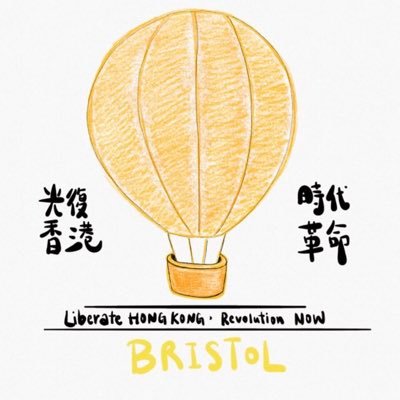 光復
香港
時代
革命
Liberate HONG KONG, Revolution NOW
BRISTOL